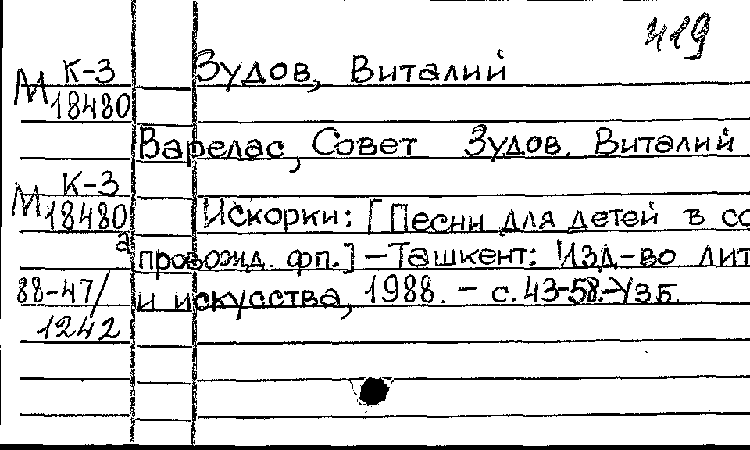 419
К-3
М 18480
Зудов, Виталий
Варелас, Совет Зудов. Виталий
К-3
М 18480
а
Искорки: [Песни для детей в со
провожд. фп.] – Ташкент: Изд-во лит
и искусства, 1988. – с. 43-58. – Узб.
88-47/
1242